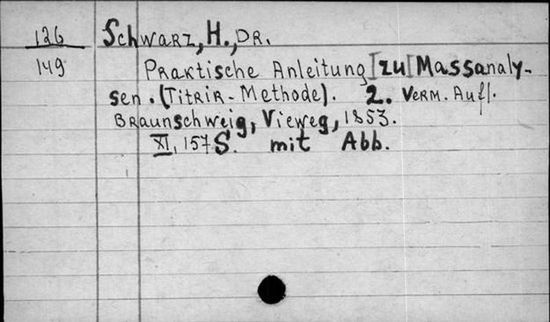 126 Schwarz, H., Dr.
149 Praktische Anleitung [zu] Massanaly-
sen. (Titrir-Methode). 2. verm. Aufl.
Braunschweig, Vieweg, 1853.
XI, 157 S. mit Abb.